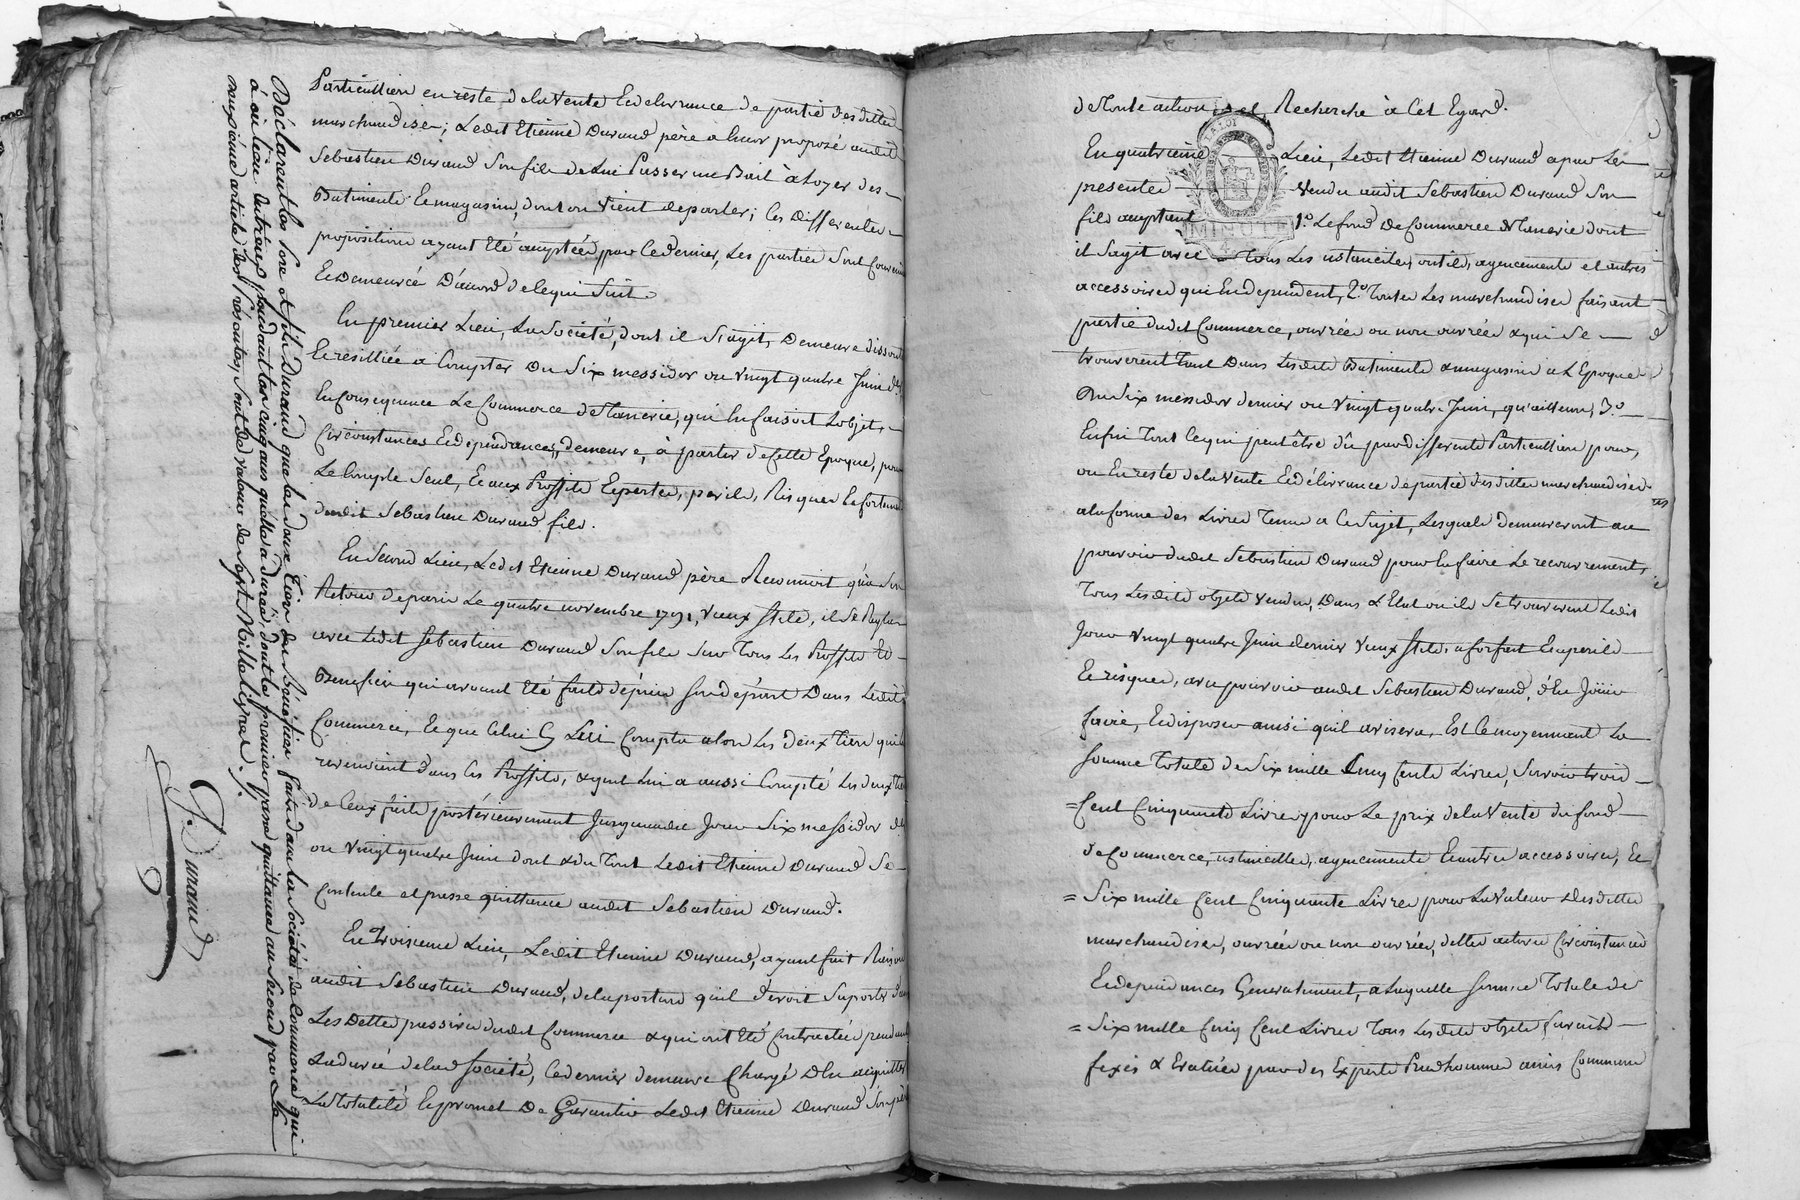 Particulliers en reste de la vente Et delivrance de partie desdittes
marchandises; Ledit Etienne Durand père a leur proposé audit
Sebastien Durand Son fils de Lui Passer un Bail à Loyer des
Batiments Et magasins, dont on vient de parler; Ces differentes
propositions ayant Eté acceptées par Ce dernier, Les parties Sont Convenu
Et Demeuré D'accord de Ce qui Suit.
En premier Lieu, La Société, dont il S'agit, Demeure dissoute
Et resilliée a Compter Du Six messidor ou vingt quatre Juin der
En Consequence Le Commerce de Tanerie, qui En faisoit L'objet,
Circonstances Et dependances, demeure, à partir de Cette Epoque, pour
Le Compte Seul, Et aux Proffits Et pertes, perils, Risques Et fortunes
dudit Sebastien Durand fils.
En Second Lieu, Ledit Etienne Durand père Reconnoit qu'a Son
Retour de paris Le quatre novembre 1791, Vieux Stile, il Se Regla
avec Ledit Sebastien Durand Son fils Sur Tous Les Proffits Et
Benefices qui avoient Eté faits dépuis Son départ Dans Ledit
Commerce, Et que Celui Cy Lui Compta alors Les deux Tiers qui lui
revenoient dans Ces Proffits, & qu'il Lui a aussi Compté Les deux tiers
de Ceux faits postérieurement Jusqu'audit Jour Six messidor der
ou vingt quatre Juin dont & du Tout Ledit Etienne Durand Se
Contente et passe quittance audit Sebastien Durand.
En Troisieme Lieu, Ledit Etienne Durand, ayant fait Raison
audit Sebastien Durand, de la portion qu'il devoit Suporter dans
Les Dettes passives dudit Commerce & qui ont Eté Contractées pendant
La durée de lad Société, Ce dernier demeure Chargé D'En acquitter
La Totalité Et promet De Garantir Ledit Etienne Durand Son père
Déclarent les Pere et fils Durand que les deux tiers des Bénéfices faits dans la société de Commerce qui
à eu lieu entr'eux pendant les cinq ans qu'elle a durée, dont le premier passe quittance au second par le
deuxième article des Présentes, sont de valeur de Sept Mille Livres.
S. Durand
de Toute action et Recherche à Cet Egard.
En quatrieme Lieu, Ledit Etienne Durand a par Les
presentes vendu audit Sebastien Durand Son
fils acceptant 1.° Le fond De Commerce de Tanerie dont
il S'agit avec Tous Les ustanciles, outils, agencements et autres
accessoires qui En dependent, 2.° Toutes Les marchandises faisant
partie dudit Commerce, ouvrées ou non ouvrées & qui Se
trouverent Tant Dans Lesdits Batiments & magasins a L'Epoque
Du Six messidor dernier ou vingt quatre Juin, qu'ailleurs, 3.°
Enfin Tout Ce qui peut être dû par differents Particulliers pour,
ou En reste de la vente Et délivrance de partie desdittes marchandises
a la forme des Livres Tenus a Ce Sujet, Lesquels demeureront au
pouvoir dudit Sebastien Durand pour En faire Le recouvrement,
Tous Lesdits objets vendus, Dans L'Etat ou ils Se trouverent Ledit
Jour vingt quatre Juin dernier vieux Stile, a forfait Et a perils
Et risques, avec pouvoir audit Sebastien Durand, d'En Jouir
faire, Et disposer ainsi qu'il avisera, Est Ce moyennant La
Somme Totale de Six mille Cinq Cents Livres, Savoir trois
= Cent Cinquante Livres pour Le prix de la Vente du fond
de Commerce, ustancilles, agencements Et autres accessoires, Et
= Six mille Cent Cinquante Livres pour La Valeur Desdittes
marchandises, ouvrées ou non ouvrées, dettes actives Circonstances
Et dependances Generalement, a Laquelle Somme Totale de
= Six mille Cinq Cent Livres Tous Lesdits objets furent
fixés & Evalués par des Experts Prudhommes amis Communs
LA LOI
MINUTE